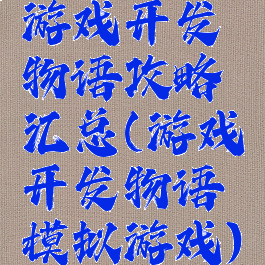 游戏开发
物语攻略
汇总(游戏
开发物语
模拟游戏)